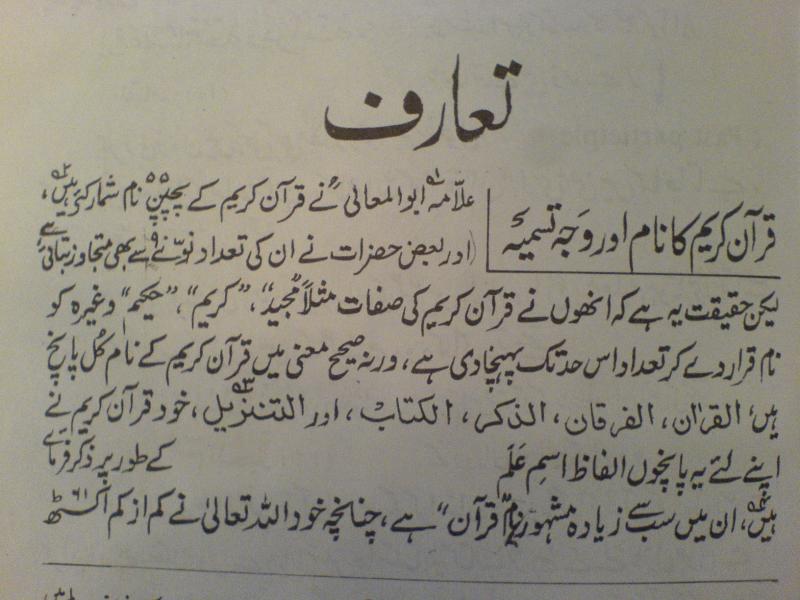 تعارف
قرآن کریم کا نام اور وجہ تسمیہ
علّامہ ابوالمعالی نے قرآن کریم کے پچپن ۵۵ نام شمار کئے ہیں،
(اور بعض حضرات نے ان کی تعداد نوّے سے بھی متجاوز بتائی ہے
لیکن حقیقت یہ ہے کہ انھوں نے قرآن کریم کی صفات مثلاً ”مجید“، ”کریم“، ”حکیم“ وغیرہ کو
نام قرار دے کر تعداد اس حد تک پہنچا دی ہے، ورنہ صحیح معنی میں قرآن کریم کے نام کُل پانچ
ہیں، القرآن، الفرقان، الذکر، الکتاب، اور التنزیل، خود قرآن کریم نے
اپنے لئے یہ پانچوں الفاظ اسمِ عَلَم کے طور پر ذکر فرمائے
ہیں، ان میں سب سے زیادہ مشہور نام ”قرآن“ ہے، چنانچہ خود اللہ تعالیٰ نے کم از کم اکسٹھ ۶۱